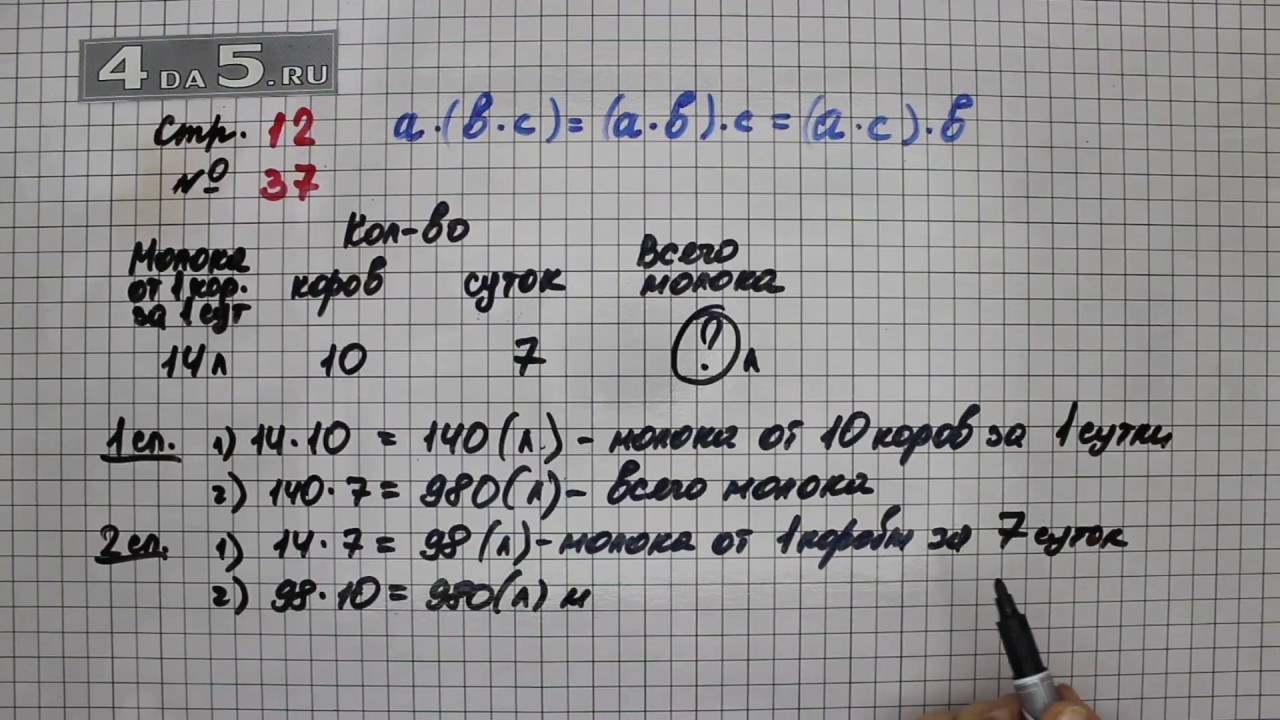 4DA5.RU
стр. 12
№ 37
а·(в·с)=(а·в)·с=(а·с)·в
Кол-во
Молока от 1 кор. за 1 сут
коров
суток
Всего молока
14 л 10 7 ? л
1 сп. 1) 14·10 = 140 (л.) - молока от 10 коров за 1 сутки
2) 140·7 = 980 (л) - всего молока
2 сп. 1) 14·7 = 98 (л) - молока от 1 коровы за 7 суток
2) 98·10 = 980 (л) м